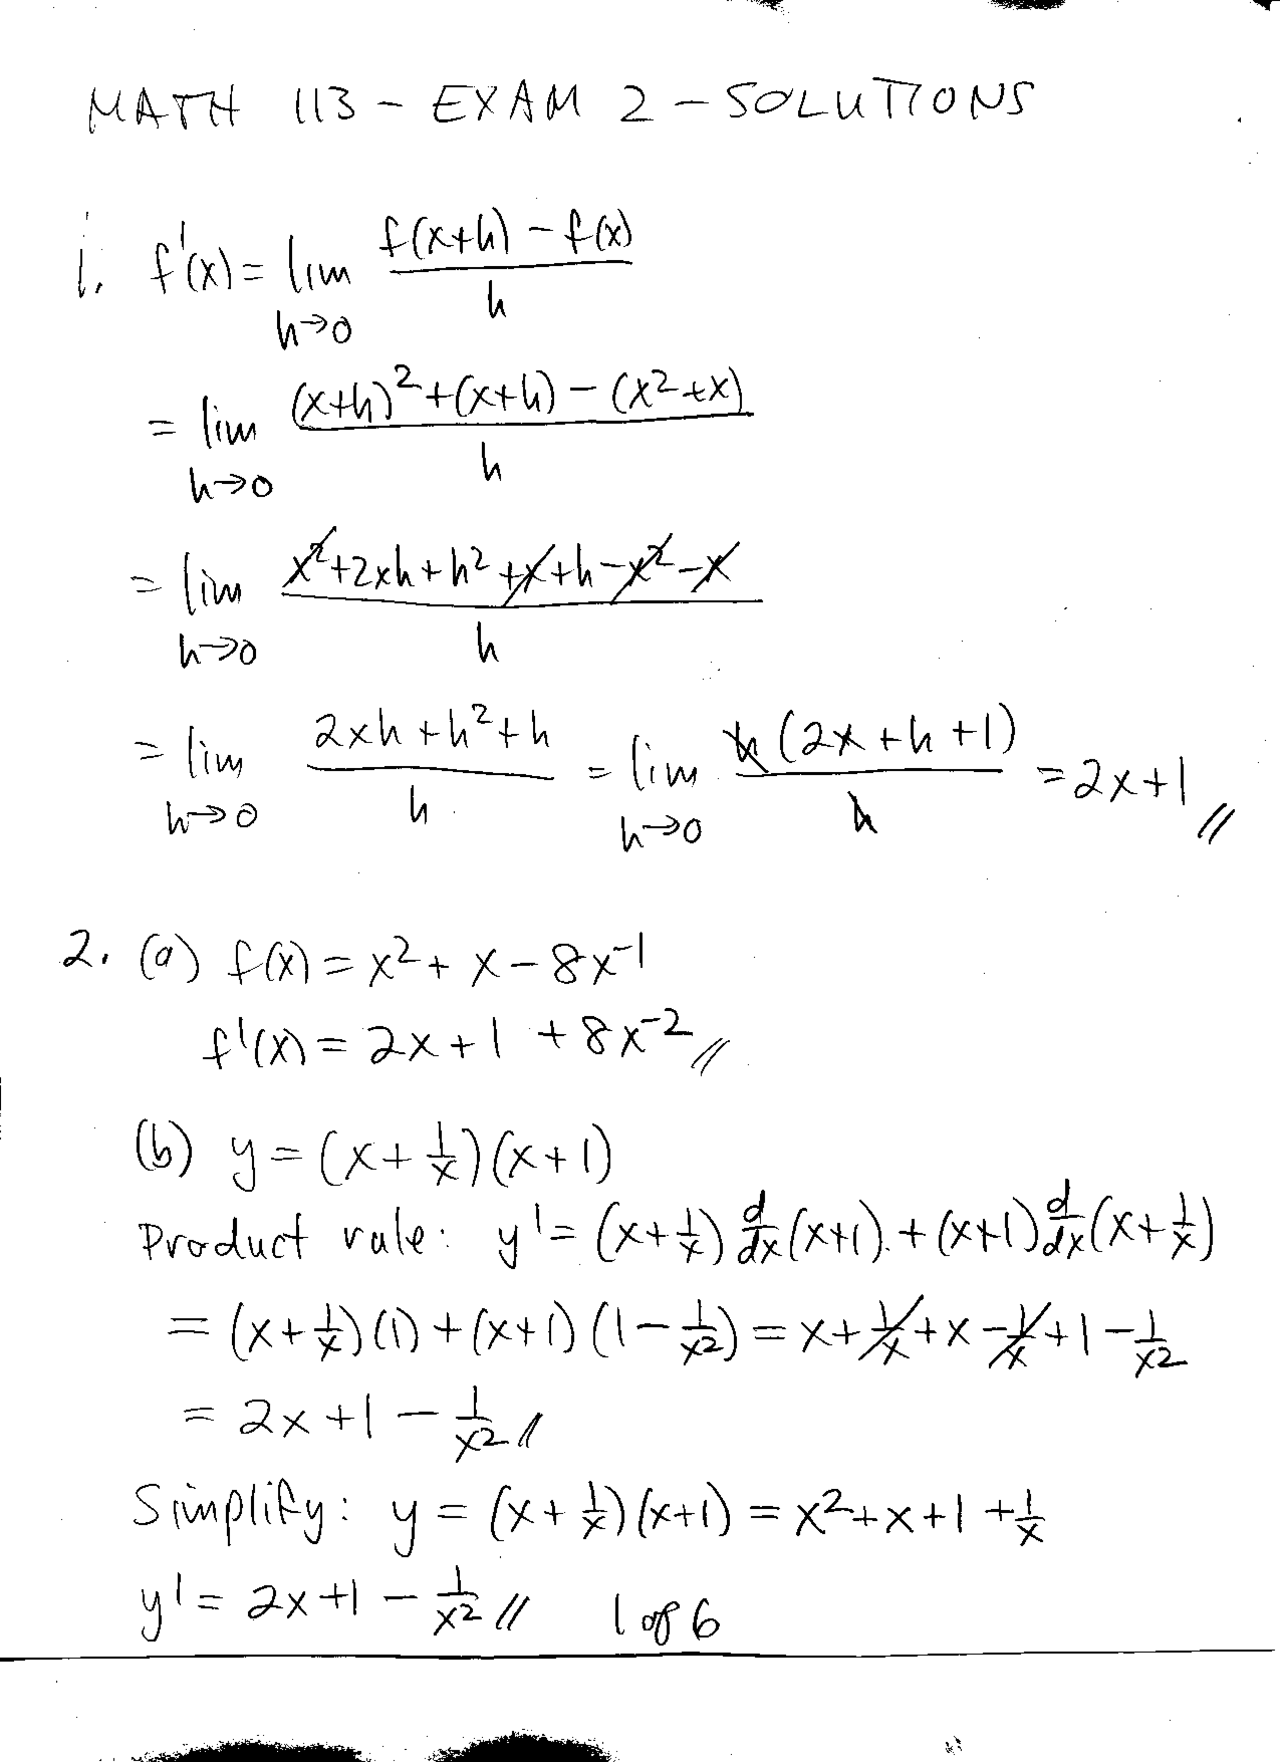 MATH 113 - EXAM 2 - SOLUTIONS
1. f'(x) = lim h→0 (f(x+h) - f(x))/h
= lim h→0 ((x+h)² + (x+h) - (x²+x))/h
= lim h→0 (x² + 2xh + h² + x + h - x² - x)/h
= lim h→0 (2xh + h² + h)/h = lim h→0 h(2x + h + 1)/h = 2x+1 //
2. (a) f(x) = x² + x - 8x⁻¹
f'(x) = 2x + 1 + 8x⁻² //
(b) y = (x + 1/x)(x+1)
Product rule: y' = (x + 1/x) d/dx (x+1) + (x+1) d/dx (x + 1/x)
= (x + 1/x)(1) + (x+1)(1 - 1/x²) = x + 1/x + x - 1/x + 1 - 1/x²
= 2x + 1 - 1/x² //
Simplify: y = (x + 1/x)(x+1) = x² + x + 1 + 1/x
y' = 2x + 1 - 1/x² // 1 of 6